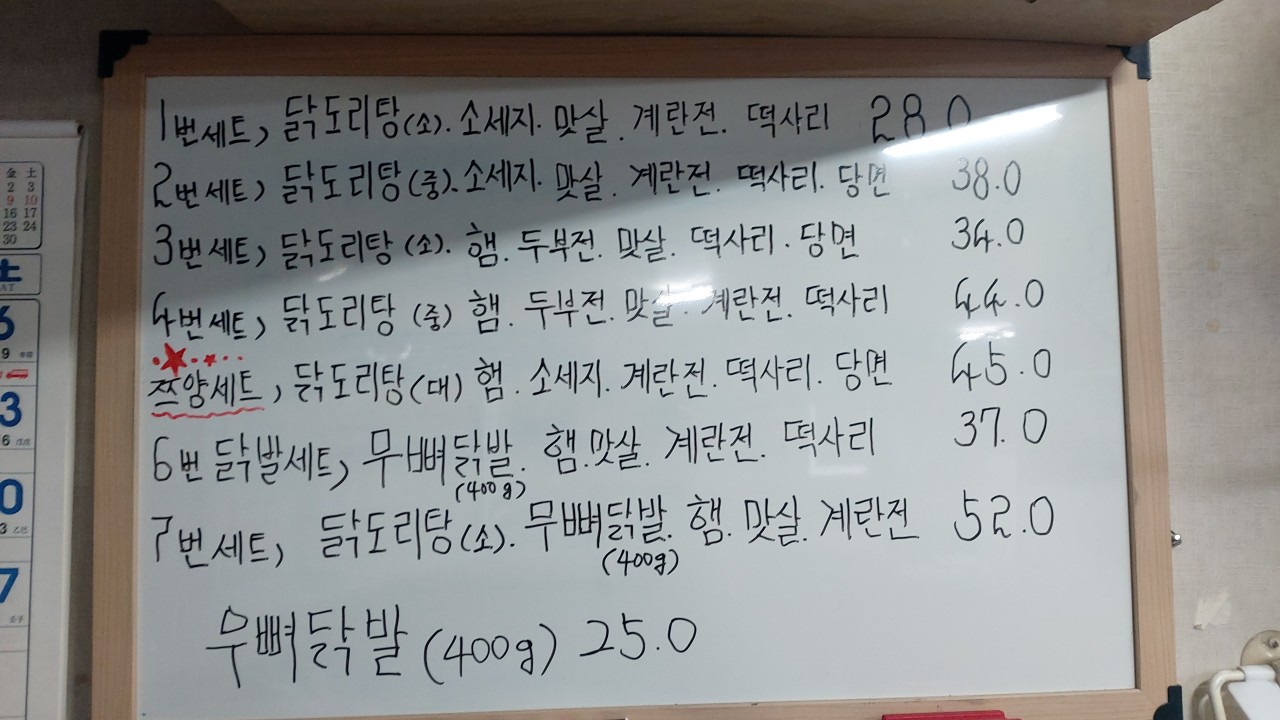 1번세트, 닭도리탕(소). 소세지. 맛살. 계란전. 떡사리 28.0
2번세트, 닭도리탕(중). 소세지. 맛살. 계란전. 떡사리. 당면 38.0
3번세트, 닭도리탕(소). 햄. 두부전. 맛살. 떡사리. 당면 34.0
4번세트, 닭도리탕(중) 햄. 두부전. 맛살. 계란전. 떡사리 44.0
쯔양세트, 닭도리탕(대) 햄. 소세지. 계란전. 떡사리. 당면 45.0
6번 닭발세트, 무뼈닭발. 햄. 맛살. 계란전. 떡사리 37.0
(400g)
7번세트, 닭도리탕(소). 무뼈닭발. 햄. 맛살. 계란전 52.0
(400g)
무뼈닭발 (400g) 25.0
金 土
2 3
9 10
16 17
23 24
30
土